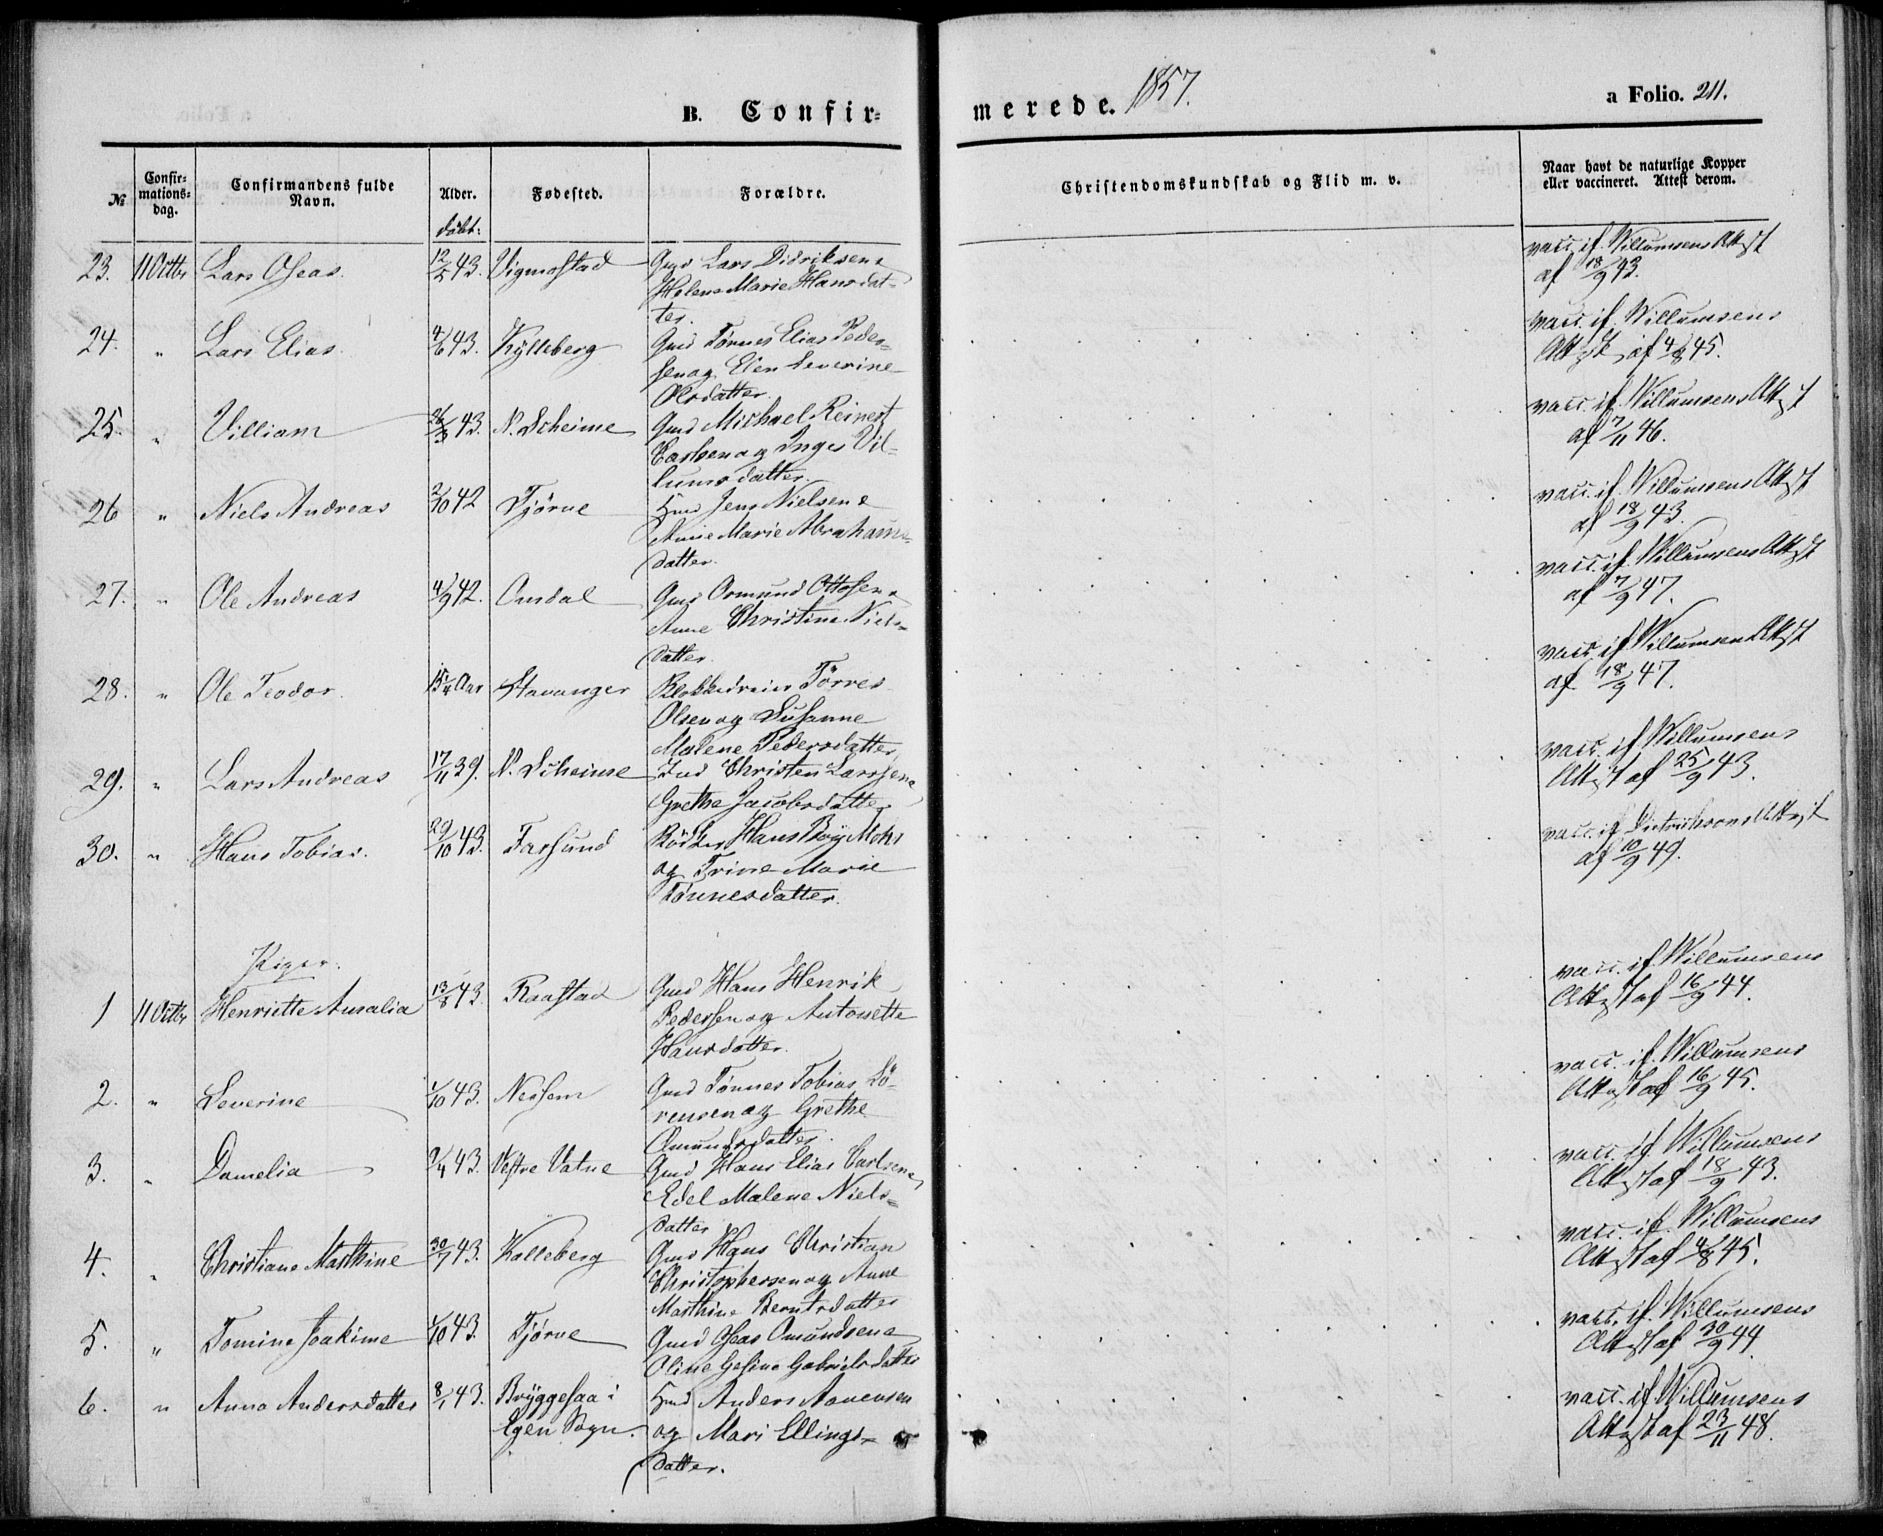 B. Confir-
merede. 1857.
a Folio. 211.
№
Confir-
mations-
dag.
Confirmandens fulde
Navn.
Alder.
Fødested.
Forældre.
Christendomskundskab og Flid m. v.
Naar havt de naturlige Kopper
eller vaccineret. Attest derom.
døbt:
23. 11 Octbr Lars Oseas. 12/2 43. Vigmostad Gmd Lars Didriksen &
Helene Marie Hansdat-
ter.
vacc. if. Willumsens Attest
af 18/9 43.
24. " Lars Elias. 4/6 43. Kylleberg Gmd Tørnes Elias Peder-
sen og Elen Severine
Olsdatter.
vacc. if. Willumsens
Attest af 4/8 45.
25. " Villiam 26/3 43. N. Scheime Gmd Michael Reinert
Carlsen og Inger Vil-
lumsdatter.
vacc. if. Willumsens Attest
af 7/11 46.
26 " Niels Andreas 2/10 42 Tjørne Hmd Jens Nielsen &
Anne Marie Abrahams-
datter.
vacc. if. Willumsens Attest
af 18/9 43.
27. " Ole Andreas 4/9 42. Omdal Gmd Osmund Ottosen &
Anne Christine Niels-
datter.
vacc. if. Willumsens Attest
af 7/9 47.
28. " Ole Teodor. 15 1/4 Aar Stavanger Torres
Olsen og Susanne
Malene Pedersdatter
vacc. if Willumsens Attest
af 18/9 47.
29. " Lars Andreas 17/11 39. N. Scheime Ind Christen Larssen &
Grethe Jacobsdatter
vacc. if Willumsens
Attest af 25/9 43.
30. " Hans Tobias. 29/10 43. Farsund Hans Boy Mohr
og Trine Marie
Tønnesdatter.
vacc. if Attest
af 10/9 49.
Piger.
1 11 Octbr Henriette Amalia 13/8 43. Raastad Gmd Hans Henrik
Pedersen og Antonette
Hansdatter.
vacc. if. Willumsens
Attest af 16/9 44.
2. " Severine 1/10 43. Nessem Gmd Tønnes Tobias Sö-
rensen og Grethe
Omundsdatter.
vacc. if. Willumsens
Attest af 16/9 45.
3. " Domelia 9/4 43. Vestre Vatne Gmd Hans Elias Carlsen &
Edel Malene Niels-
datter
vacc. if Willumsens
Attest af 18/9 43.
4. " Christiane Marthine 30/7 43. Kolleberg Gmd Hans Christian
Christophersen og Anne
Marthine Berntsdatter
vacc. if. Willumsens
Attest af 4/8 45.
5. " Tomine Joakime 1/10 43. Tjørne Gmd Oseas Omundsen &
Oline Gesine Gabrielsdatter
vacc. if. Willumsens
Attest af 30/9 44.
6. " Anna Andersdatter 8/1 43. Bryggesaa i
Egen Sogn.
Hmd Anders Aanensen
og Mari Ellings-
datter.
vacc. if Willumsens
Attest af 23/11 48.